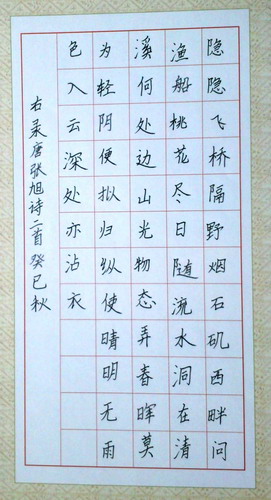 隐隐飞桥隔野烟石矶西畔问
渔船桃花尽日随流水洞在清
溪何处边山光物态弄春晖莫
为轻阴便拟归纵使晴明无雨
色入云深处亦沾衣
右录唐张旭诗二首癸巳秋